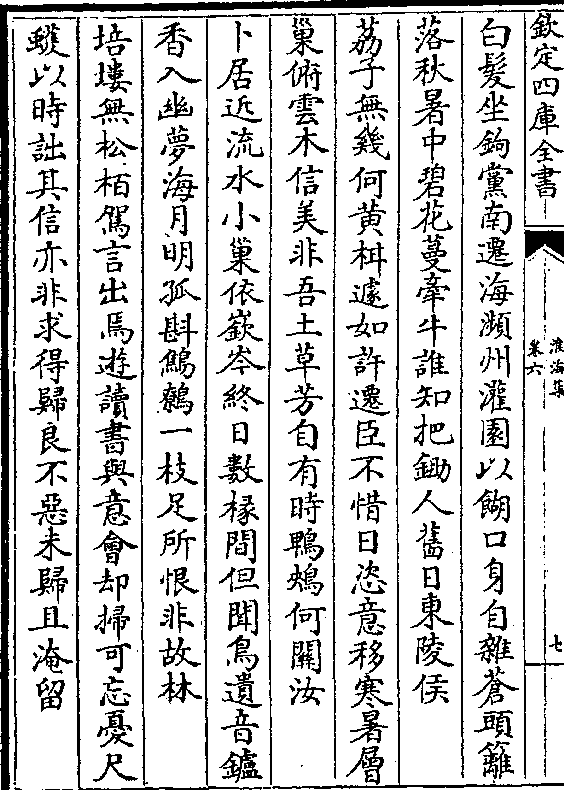 欽定四庫全書
淮海集
卷六
七
白髮坐鉤黨南遷海瀕州灌園以餬口身自雜蒼頭籬
落秋暑中碧花蔓牽牛誰知把鋤人舊日東陵侯
荔子無幾何黃柑遽如許遷臣不惜日恣意移寒暑層
巢俯雲木信美非吾土草芳自有時鶗鴂何關汝
卜居近流水小巢依嶔岑終日數椽間但聞鳥遺音鑪
香入幽夢海月明孤斟鷦鷯一枝足所恨非故林
培塿無松栢駕言出焉遊讀書與意會却掃可忘憂尺
蠖以時詘其信亦非求得歸良不惡未歸且淹留